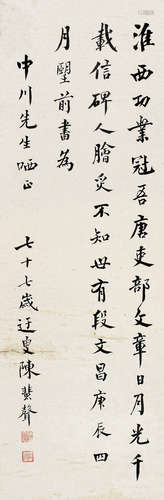 淮西功業冠吾唐吏部文章日月光千
載信碑人膾炙不知世有段文昌庚辰四
月朢前書為
中川先生哂正
七十七歲迂叟陳蜚聲